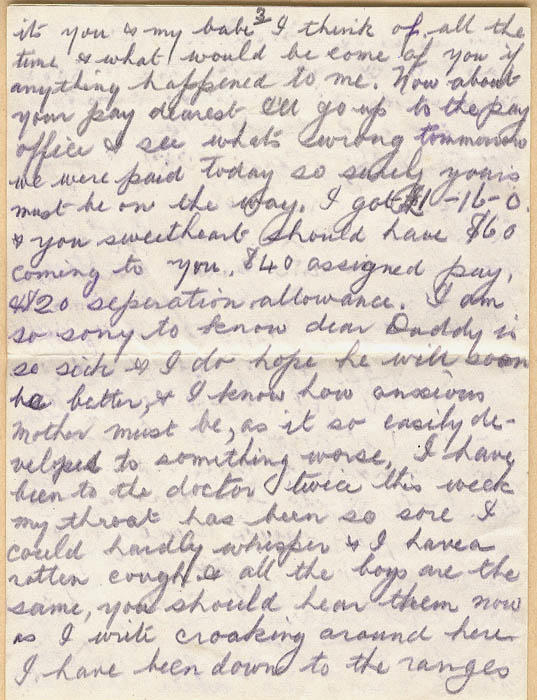 3
its you & my babe I think of all the
time & what would become of you if
anything happened to me. Now about
your pay dearest I'll go up to the pay
office & see whats wrong tommorow
we were paid today so surely yours
must be on the way. I got £1-16-0.
& you sweetheart should have $60
coming to you. $40 assigned pay,
& $20 seperation allowance. I am
so sorry to know dear Daddy is
so sick & I do hope he will soon
be better, & I know how anxious
Mother must be, as it so easily de-
veloped to something worse, I have
been to the doctor twice this week
my throat has been so sore I
could hardly whisper & I have a
rotten cough & all the boys are the
same, you should hear them now
as I write croaking around here
I have been down to the ranges